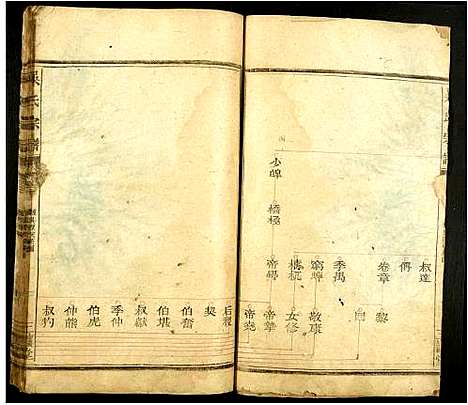 叔達
卷章
季禺
窮蟬
檮杌
帝嚳
橋極
少皥
黎
敬康
女修
帝摯
帝堯
后稷
契
伯奮
伯堪
叔獻
季仲
伯虎
仲熊
叔豹
吳氏宗譜